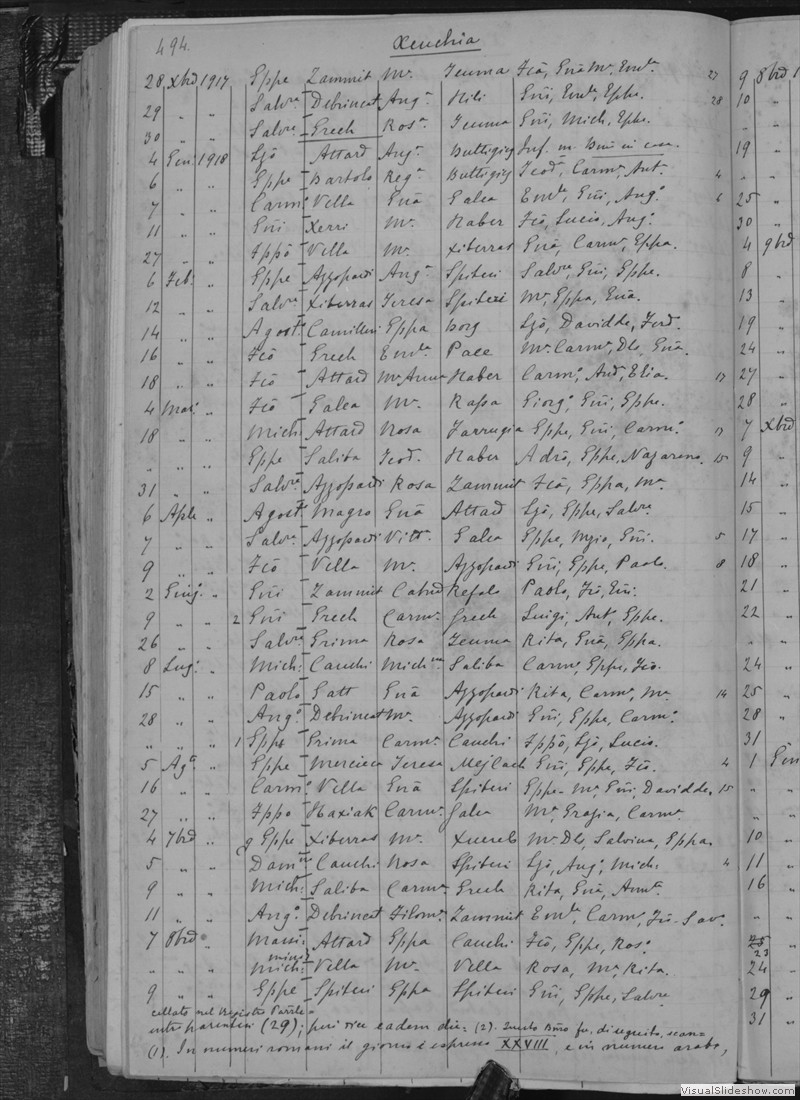 494.
Xeuchia
28 Xbrd 1917 Eppe Zammit Mª Teuma Frõ, Enã Mª, Emla 27 9 8brd 1
29 „ „ Salvre Debrincat Angª Hili Gni, Emla, Eppe. 28 10 „
30 „ „ Salvre Grech Rosª Teuma Gni, Mich, Eppe. „ „
4 Gen: 1918 Ljõ Attard Angª Buttigieg Inf. m. in casa. 19 „
6 „ „ Eppe Bartolo Regª Buttigieg Teod, Carmª, Ant. 4 „ „
7 „ „ Carmº Vella Enã Galea Emla, Gni, Angª 6 25 „
11 „ „ Gni Xerri Mª Haber Frõ, Lucio, Angº 30 „
27 „ „ Ippõ Vella Mª Xiberras Enã, Carmª, Eppa. 4 9brd
6 Feb. „ Eppe Azzopardi Angª Spiteri Salvre, Gni, Eppe. 8 „
12 „ „ Salvre Xiberras Teresa Spiteri Mª, Eppa, Enã. 13 „
14 „ „ Agostº Camilleri Eppa Borg Ljõ, Davidde, Ferd. 19 „
16 „ „ Frõ Grech Emla Pace Mª Carmª, Dls, Enã. 24 „
18 „ „ Frõ Attard Mª Anna Haber Carmº, And, Elia. 17 27 „
4 Mar. „ Frõ Galea Mª Rapa Giorgº, Gni, Eppe. 28 „
18 „ „ Mich: Attard Rosa Farrugia Eppe, Gni, Carmº. 7 Xbrd
„ „ „ Eppe Saliba Teod. Haber Adrõ, Eppe, Nazareno. 15 9 „
31 „ „ Salvre Azzopardi Rosa Zammit Frõ, Eppa, Mª. 14 „
6 Aple „ Agostº Magro Enã Attard Ljõ, Eppe, Salvre 15 „
7 „ „ Salvre Azzopardi Vitt. Galea Eppe, Gni. 5 17 „
9 „ „ Frõ Vella Mª. Azzopardi Gni, Eppe, Paolo. 8 18 „
2 Giug. „ Gni Zammit Refalo Paolo, Frõ, Gni. 21 „
9 „ „ 2 Gni Grech Carmª Grech Luigi, Ant, Eppe. 22 „
26 „ „ Salvre Grima Rosa Teuma Rita, Enã, Eppa. „ „
8 Lug. „ Mich: Cauchi Michna Saliba Carmª, Eppe, Frõ. 24 „
15 „ „ Paolo Gatt Enã Azzopardi Rita, Carmª, Mª. 14 25 „
28 „ „ Angº Debrincat Mª. Azzopardi Gni, Eppe, Carmº. 28 „
„ „ „ 1 Eppe Grima Carmª Cauchi Ippõ, Ljõ, Lucio. 31 „
5 Agº „ Eppe Mercieca Teresa Mejlach Gni, Eppe, Frõ. 4 1 Gen
16 „ „ Carmº Vella Enã Spiteri Eppe-Mª, Gni, Davidde. 15 „ „
27 „ „ Ippõ Haxiak Carmª Galea Mª, Grazia, Carmª. „ „
4 7brd „ Eppe Xiberras Mª Xuereb Mª Dls, Salvina, Eppa. 10 „
5 „ „ Damº Cauchi Rosa Spiteri Ljõ, Angº, Mich. 4 11 „
9 „ „ Mich: Saliba Carmª Grech Rita, Enã, Annta 16 „
11 „ „ Angº Debrincat Filomª Zammit Emla, Carmª, Frõ-Sav. „ „
7 8brd „ Massimino Attard Eppa Cauchi Frõ, Eppe, Rosº. 23 „
„ „ „ Mich: Vella Mª. Vella Rosa, Mª, Rita. 24 „
9 „ „ Eppe Spiteri Eppa Spiteri Gni, Eppe, Salvre 29 „
cellato nel registro Parrle
entro parentesi (29); eadem die = (2). Questo fu, di seguito, scan= 31 „
(1). In numeri romani il giorno è espresso XXVIII, e in numero arabo,
VisualSlideshow.com